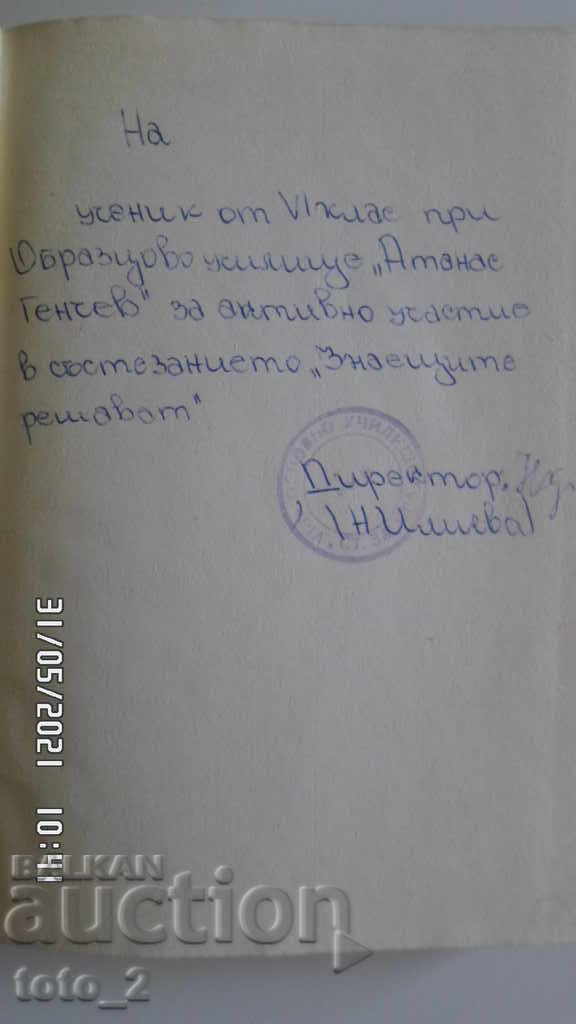 На
ученик от VI клас при
Образцово училище „Атанас
Генчев" за активно участие
в състезанието „Знаещите
решават"
Директор:
/Н Илиева/
ОСНОВНО УЧИЛ
31/05/2021 10:41
BALKAN
auction
toto_2